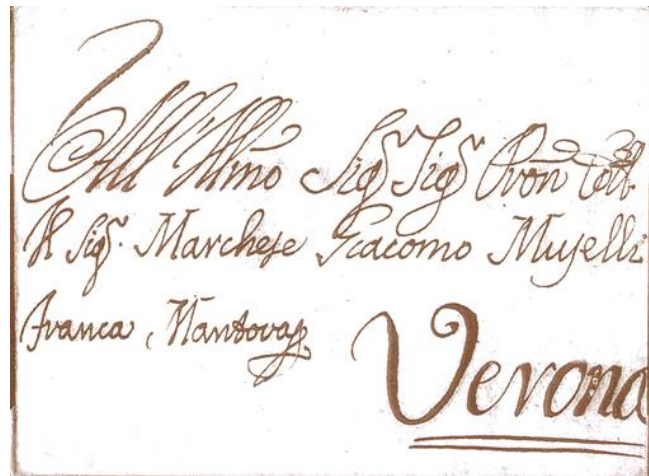 All' Illmo Sigr Sigr Pron Coll
Il Sigr. Marchese Giacomo Muselli
franca, Mantova p
Verona